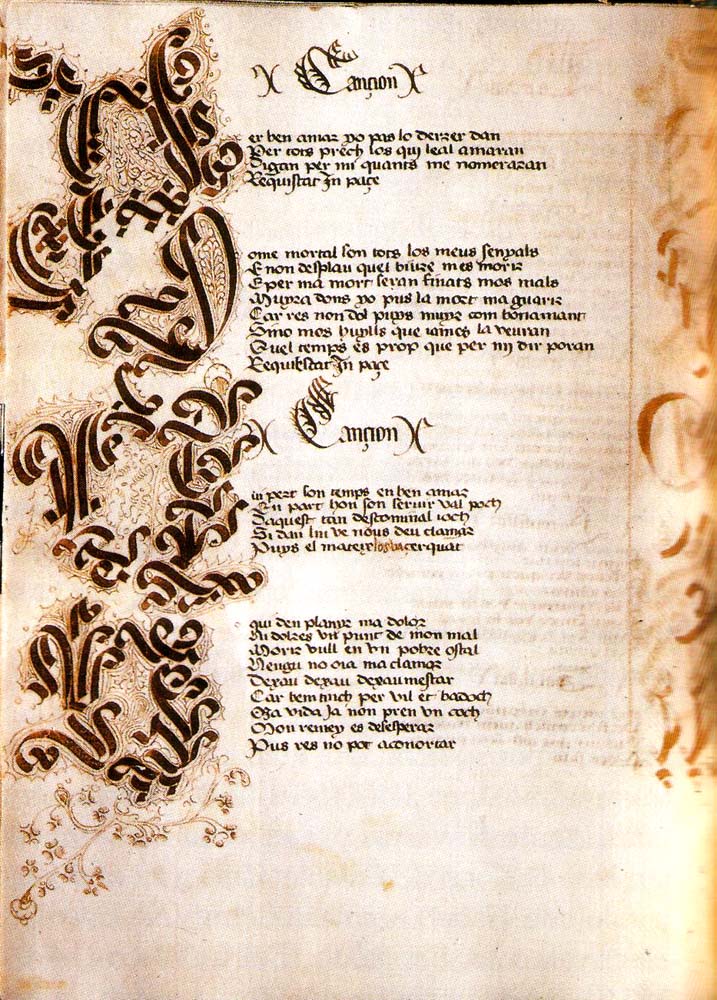 Cançion
er ben amar yo pas lo derrer dan
Per tots prech los qui leal amaran
Digan per mi quants me nomeraran
Requiscat In paçe
ome mortal son tots los meus senyals
E non desplau quel biure mes morir
E per ma mort seran finats mos mals
Muyra dons yo pus la mort ma guarir
Car res non dol puys muyr com bonamant
Sino mos huylls que iames la veuran
Quel temps es prop que per mi dir poran
Requiescat In paçe
Cançion
ui pert son temps en ben amar
En part hon son seruir val poch
Daquest tan descominal ioch
Si dan lui ve nous deu clamar
Puys el mateix los ha cerquat
qui den planyr ma dolor
Ni dolres vn punt de mon mal
Morir vull en vn pobre ostal
Nengu no oia ma clamor
Dexau dexau dexaumestar
Car bem tinch per vil et badoch
Ma vida Ja non pren vn coch
Mon remey es desesperar
Pus res no pot aconortar